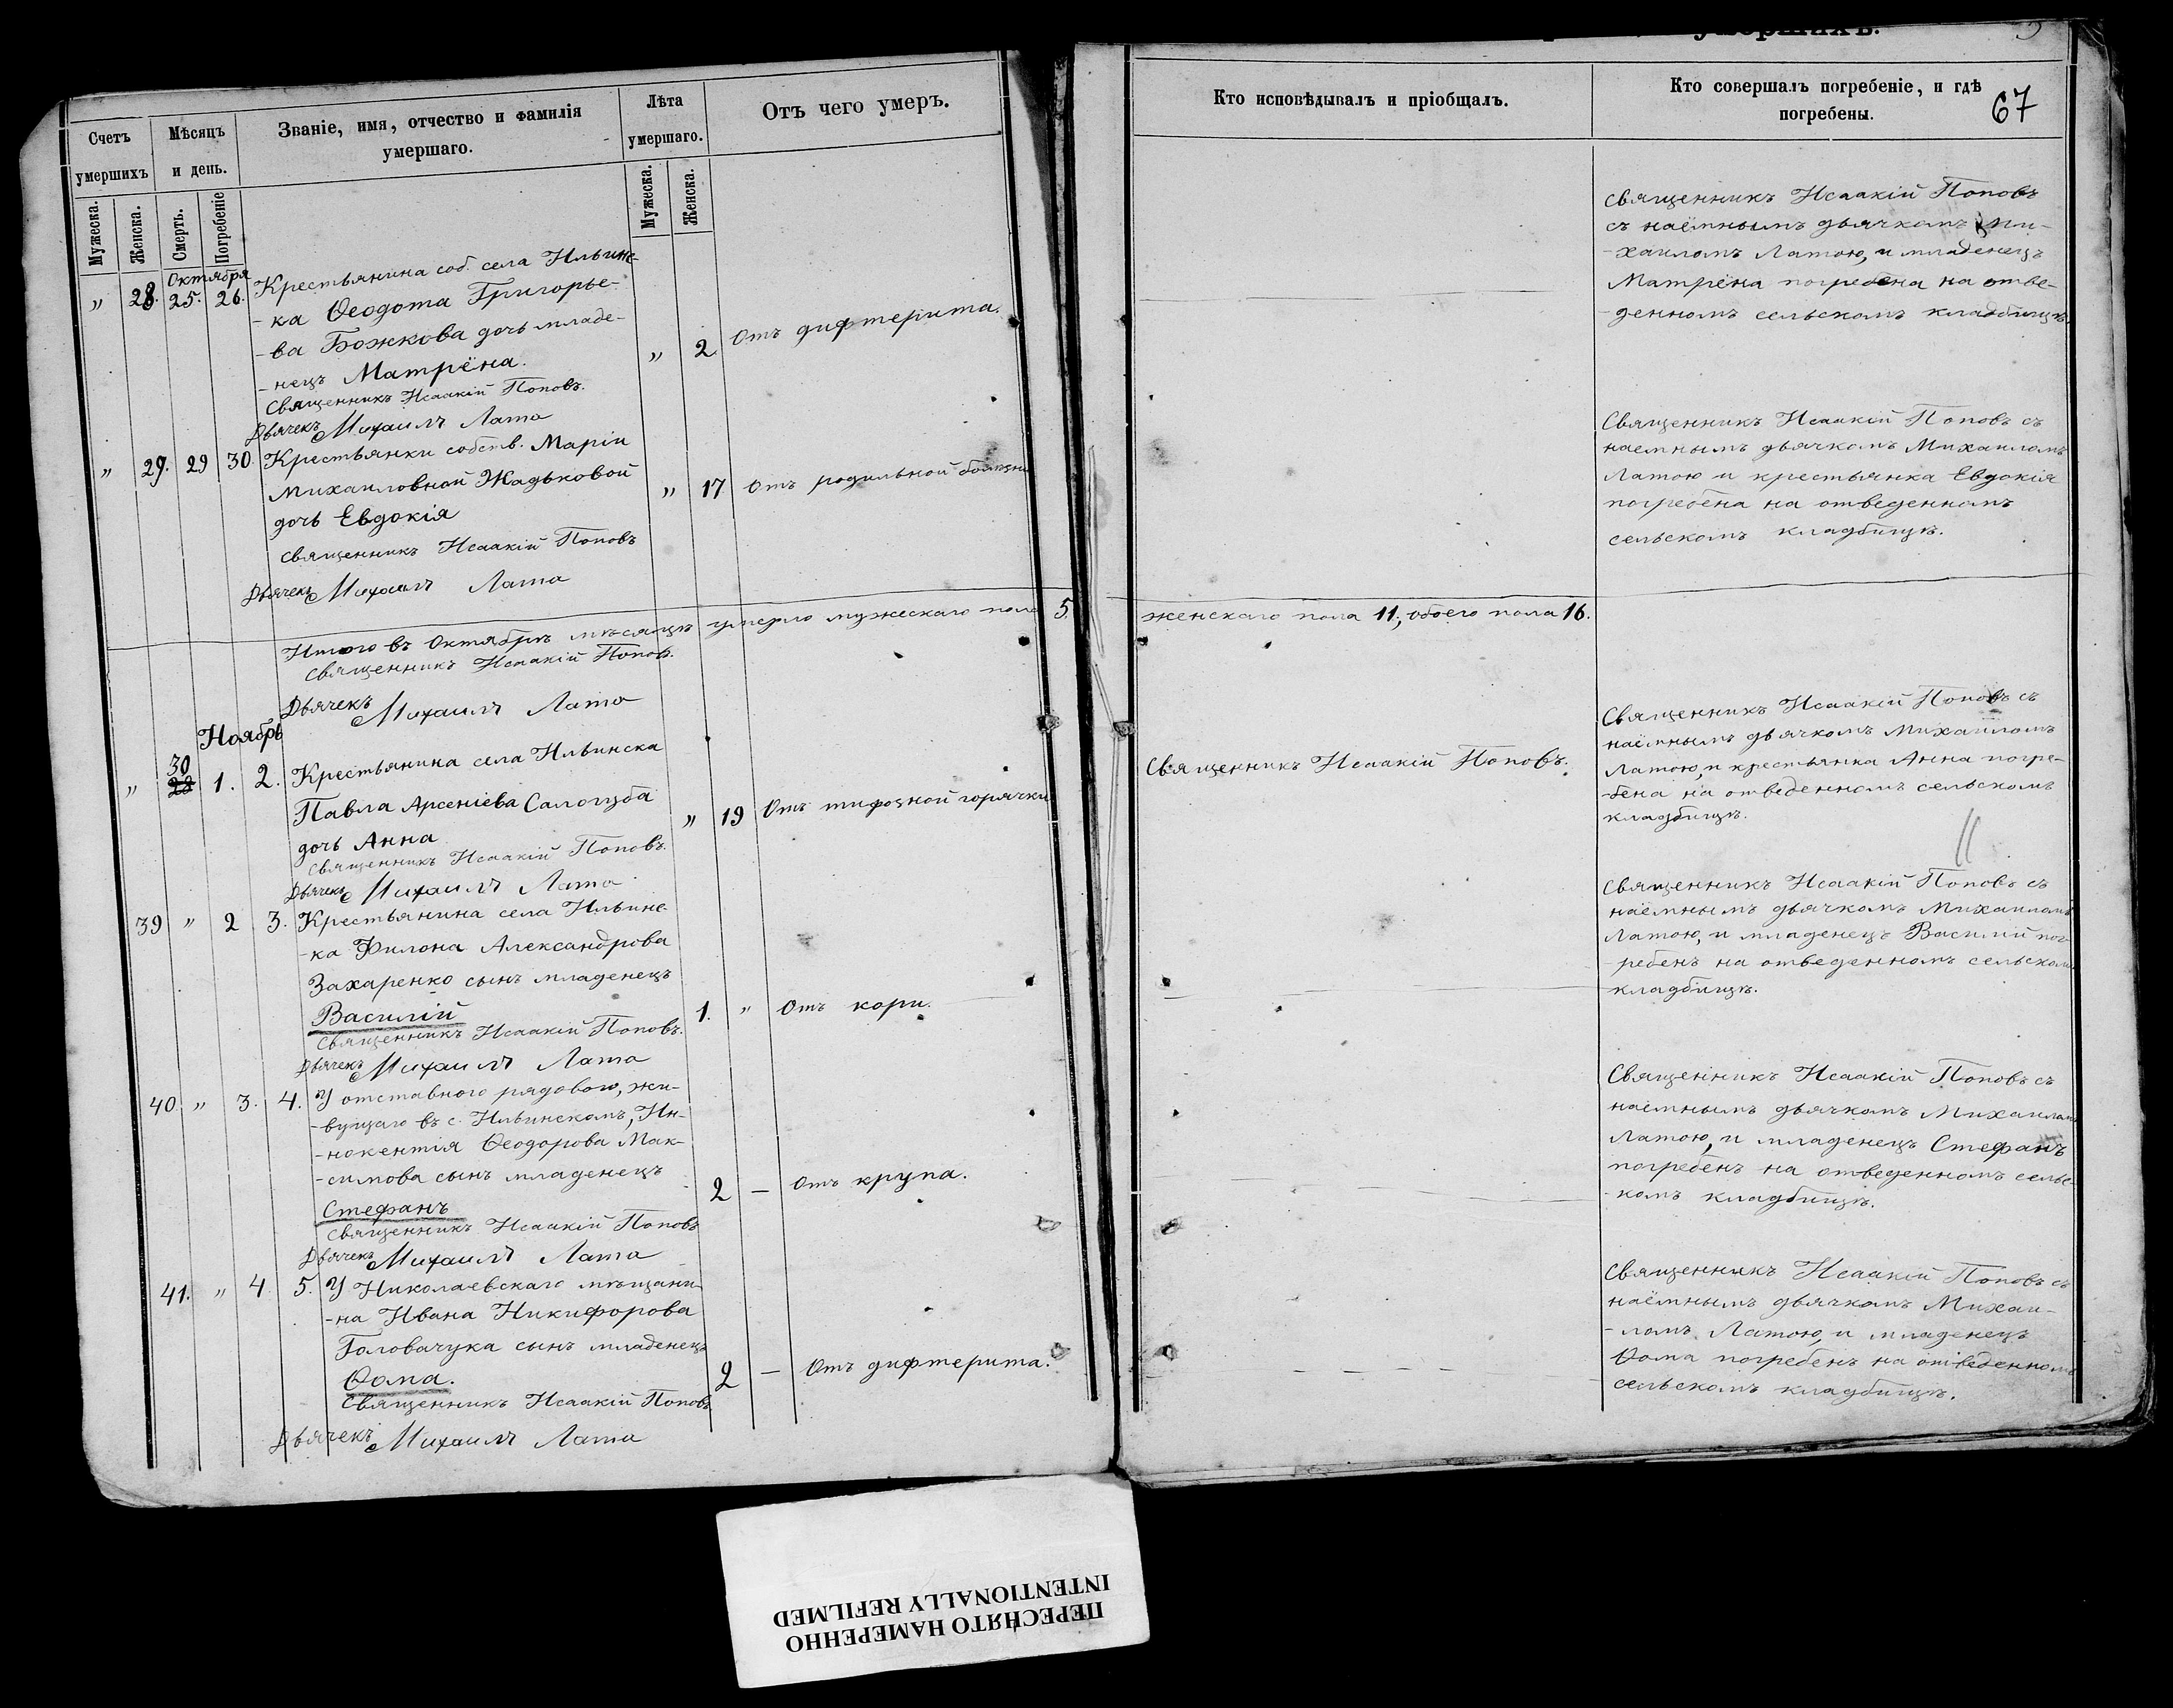 умершихъ.
67
Счетъ умершихъ
Мѣсяцъ и день.
Званіе, имя, отчество и фамилія умершаго.
Лѣта умершаго.
Отъ чего умеръ.
Кто исповѣдывалъ и пріобщалъ.
Кто совершалъ погребеніе, и гдѣ погребены.
Мужеска.
Женска.
Смерть.
Погребеніе
Мужеска.
Женска.
Октября
„ 28. 25. 26.
Крестьянина соб. села Ильинс-
-ка Ѳеодота Григорье-
-ва Божкова дочь младе-
-нецъ Матрёна.
„ 2. Отъ дифтерита.
Священникъ Исаакій Поповъ.
Дьячекъ Михаилъ Лата
Священникъ Исаакій Поповъ
съ наёмнымъ дьячкомъ Ми-
-хаиломъ Латою, и младенецъ
Матрёна погребена на отве-
-денномъ сельскомъ кладбищѣ.
„ 29. 29 30.
Крестьянки собств. Маріи
Михаиловной Жадьковой
дочь Евдокія
„ 17 Отъ родильной болѣзни
Священникъ Исаакій Поповъ
Дьячекъ Михаилъ Лата
Священникъ Исаакій Поповъ съ
наемнымъ дьячкомъ Михаиломъ
Латою и крестьянка Евдокія
погребена на отведенномъ
сельскомъ кладбищѣ.
Итого въ Октябрѣ мѣсяцѣ умерло мужескаго пола 5. женскаго пола 11, обоего пола 16.
Священникъ Исаакій Поповъ.
Дьячекъ Михаилъ Лата
Ноябрь
30
„ 28 1. 2.
Крестьянина села Ильинска
Павла Арсеніева Салогуба
дочь Анна
„ 19 Отъ тифозной горячки
Священникъ Исаакій Поповъ.
Дьячекъ Михаилъ Лата
Священникъ Исаакій Поповъ.
Священникъ Исаакій Поповъ съ
наёмнымъ дьячкомъ Михаиломъ
Латою, и крестьянка Анна погре-
-бена на отведенномъ сельскомъ
кладбищѣ.
39 „ 2 3.
Крестьянина села Ильинс-
-ка Филона Александрова
Захаренко сынъ младенецъ
Василій
1. „ Отъ кори.
Священникъ Исаакій Поповъ.
Дьячекъ Михаилъ Лата
Священникъ Исаакій Поповъ съ
наёмнымъ дьячкомъ Михаиломъ
Латою, и младенецъ Василій пог-
-ребенъ на отведенномъ сельскомъ
кладбищѣ.
40 „ 3. 4.
У отставного рядового, жи-
-вущаго въ с. Ильинскомъ, Ин-
-нокентія Ѳеодорова Мак-
-симова сынъ младенецъ
Стефанъ
2 — Отъ крупа.
Священникъ Исаакій Поповъ
Дьячекъ Михаилъ Лата
Священникъ Исаакій Поповъ съ
наёмнымъ дьячкомъ Михаиломъ
Латою, и младенецъ Стефанъ
погребенъ на отведенномъ сельс-
-комъ кладбищѣ.
41. „ 4 5.
У Николаевскаго мѣщани-
-на Ивана Никифорова
Головачука сынъ младенецъ
Ѳома.
2 — Отъ дифтерита.
Священникъ Исаакій Поповъ
Дьячекъ Михаилъ Лата
Священникъ Исаакій Поповъ съ
наёмнымъ дьячкомъ Михаи-
-ломъ Латою, и младенецъ
Ѳома погребенъ на отведенномъ
сельскомъ кладбищѣ.
ПЕРЕСНЯТО НАМЕРЕННО
INTENTIONALLY REFILMED